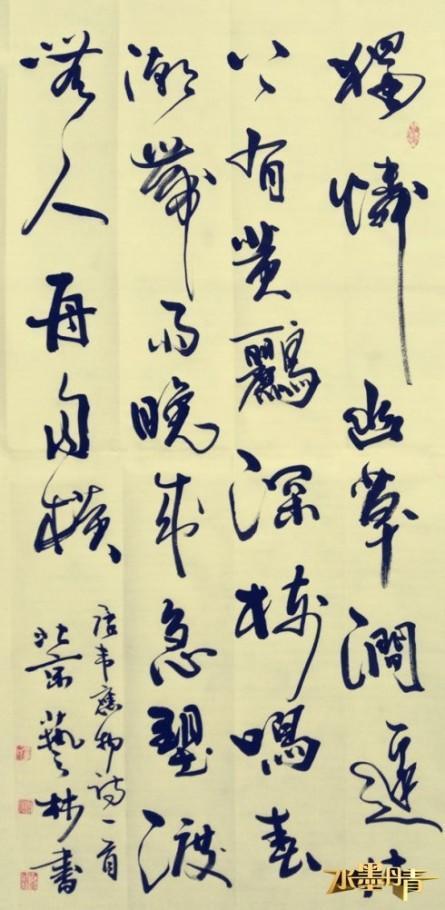 獨憐幽草澗邊生
上有黄鸝深樹鳴春
潮帶雨晚來急野渡
無人舟自橫
唐韋應物詩一首
北京藝林書
水墨丹青